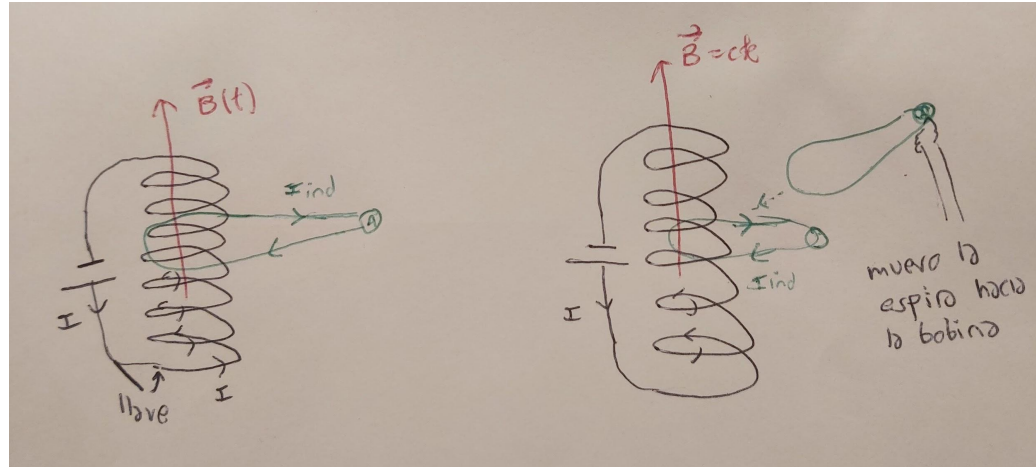 B⃗(t)
I ind
A
I
llave
I
B⃗ = cte
I ind
I
muevo la
espira hacia
la bobina